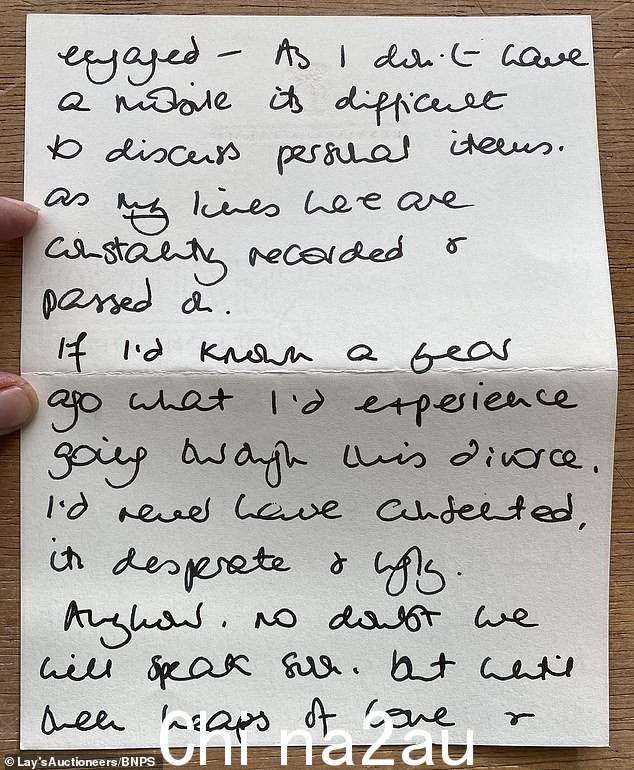 engaged – As I don't have
a mobile its difficult
to discuss personal items.
as my lines here are
constantly recorded &
passed on.
If I'd known a year
ago what I'd experience
going through this divorce.
I'd never have consented,
its desperate & ugly.
Anyhow. no doubt we
will speak soon. but until
then heaps of love &
Chi na2au
© Lay'sAuctioneers/BNPS